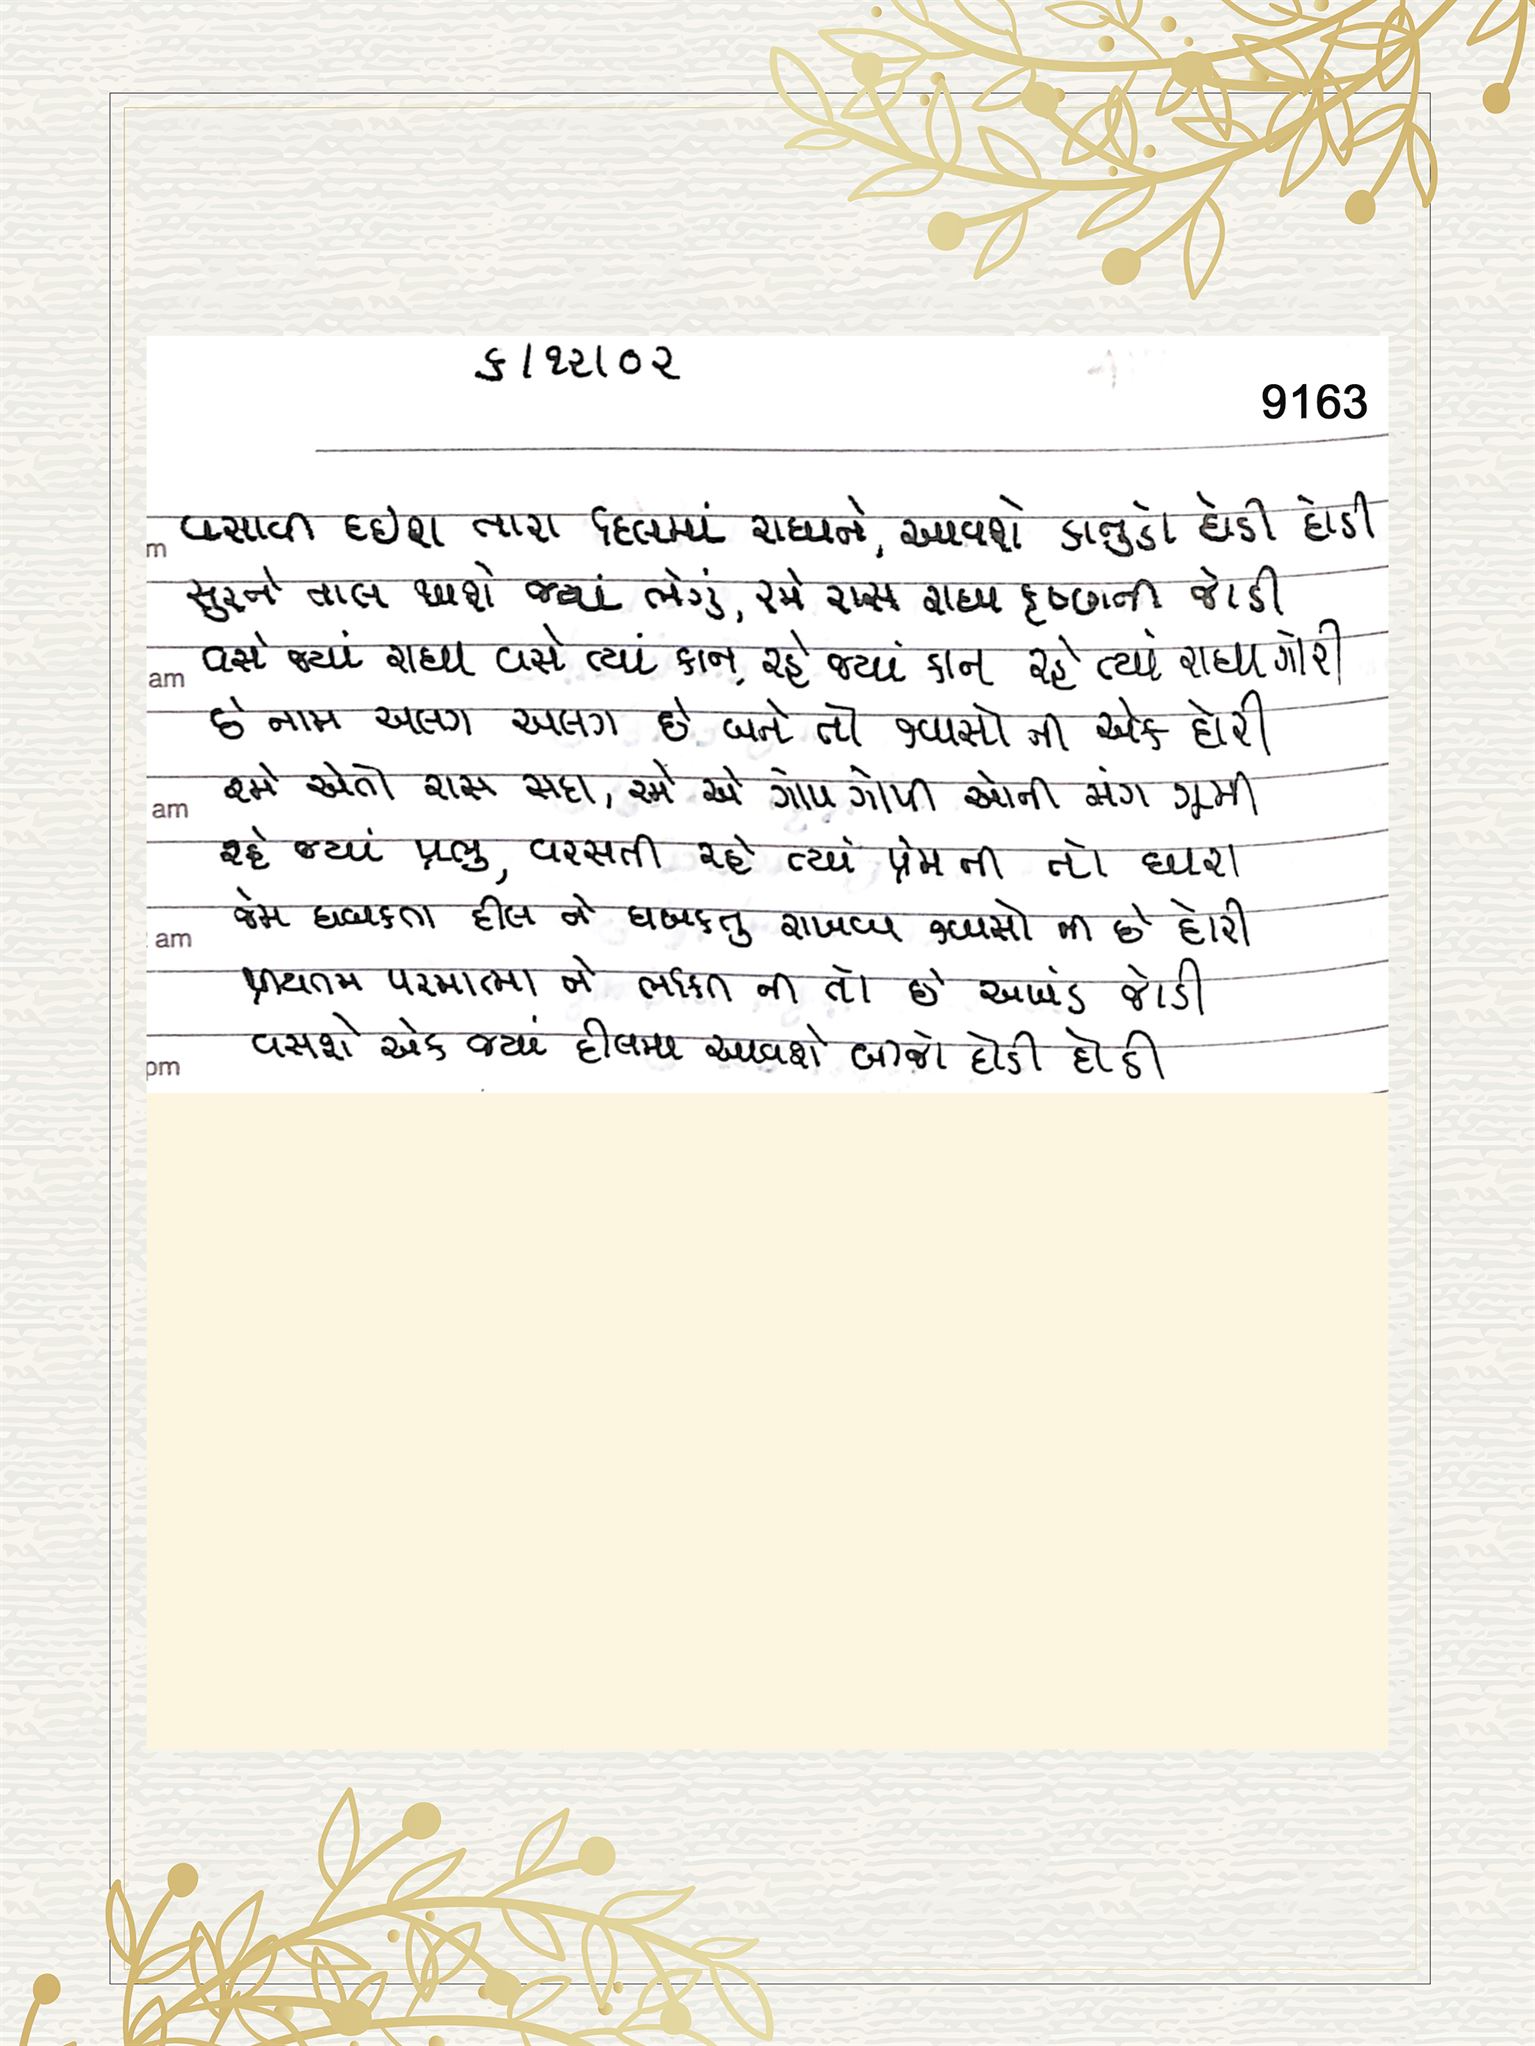 ૬/૧૨/૦૨
9163
વસાવી દઇશ તારા દિલમાં રાધાને, આવશે કાનુડો દોડી દોડી
સુરને તાલ થાશે જ્યાં ભેગું, રમે રાસ રાધા કૃષ્ણની જોડી
વસે જ્યાં રાધા વસે ત્યાં કાન, રહે જ્યાં કાન રહે ત્યાં રાધા ગોરી
છે નામ અલગ અલગ છે બને તો શ્વાસો ની એક દોરી
રમે એતો રાસ સદા, રમે એ ગોપ ગોપી ઓની સંગ ઝૂમી
રહે જ્યાં પ્રભુ, વરસતી રહે ત્યાં પ્રેમ ની તો ધારા
જેમ ધબકતા દીલ ને ધબકતુ રાખવા શ્વાસો ની છે દોરી
પ્રીયતમ પરમાત્મા ને ભક્તિ ની તો છે અખંડ જોડી
વસશે એક જ્યાં દીલમા આવશે બીજો દોડી દોડી
m
am
am
am
pm